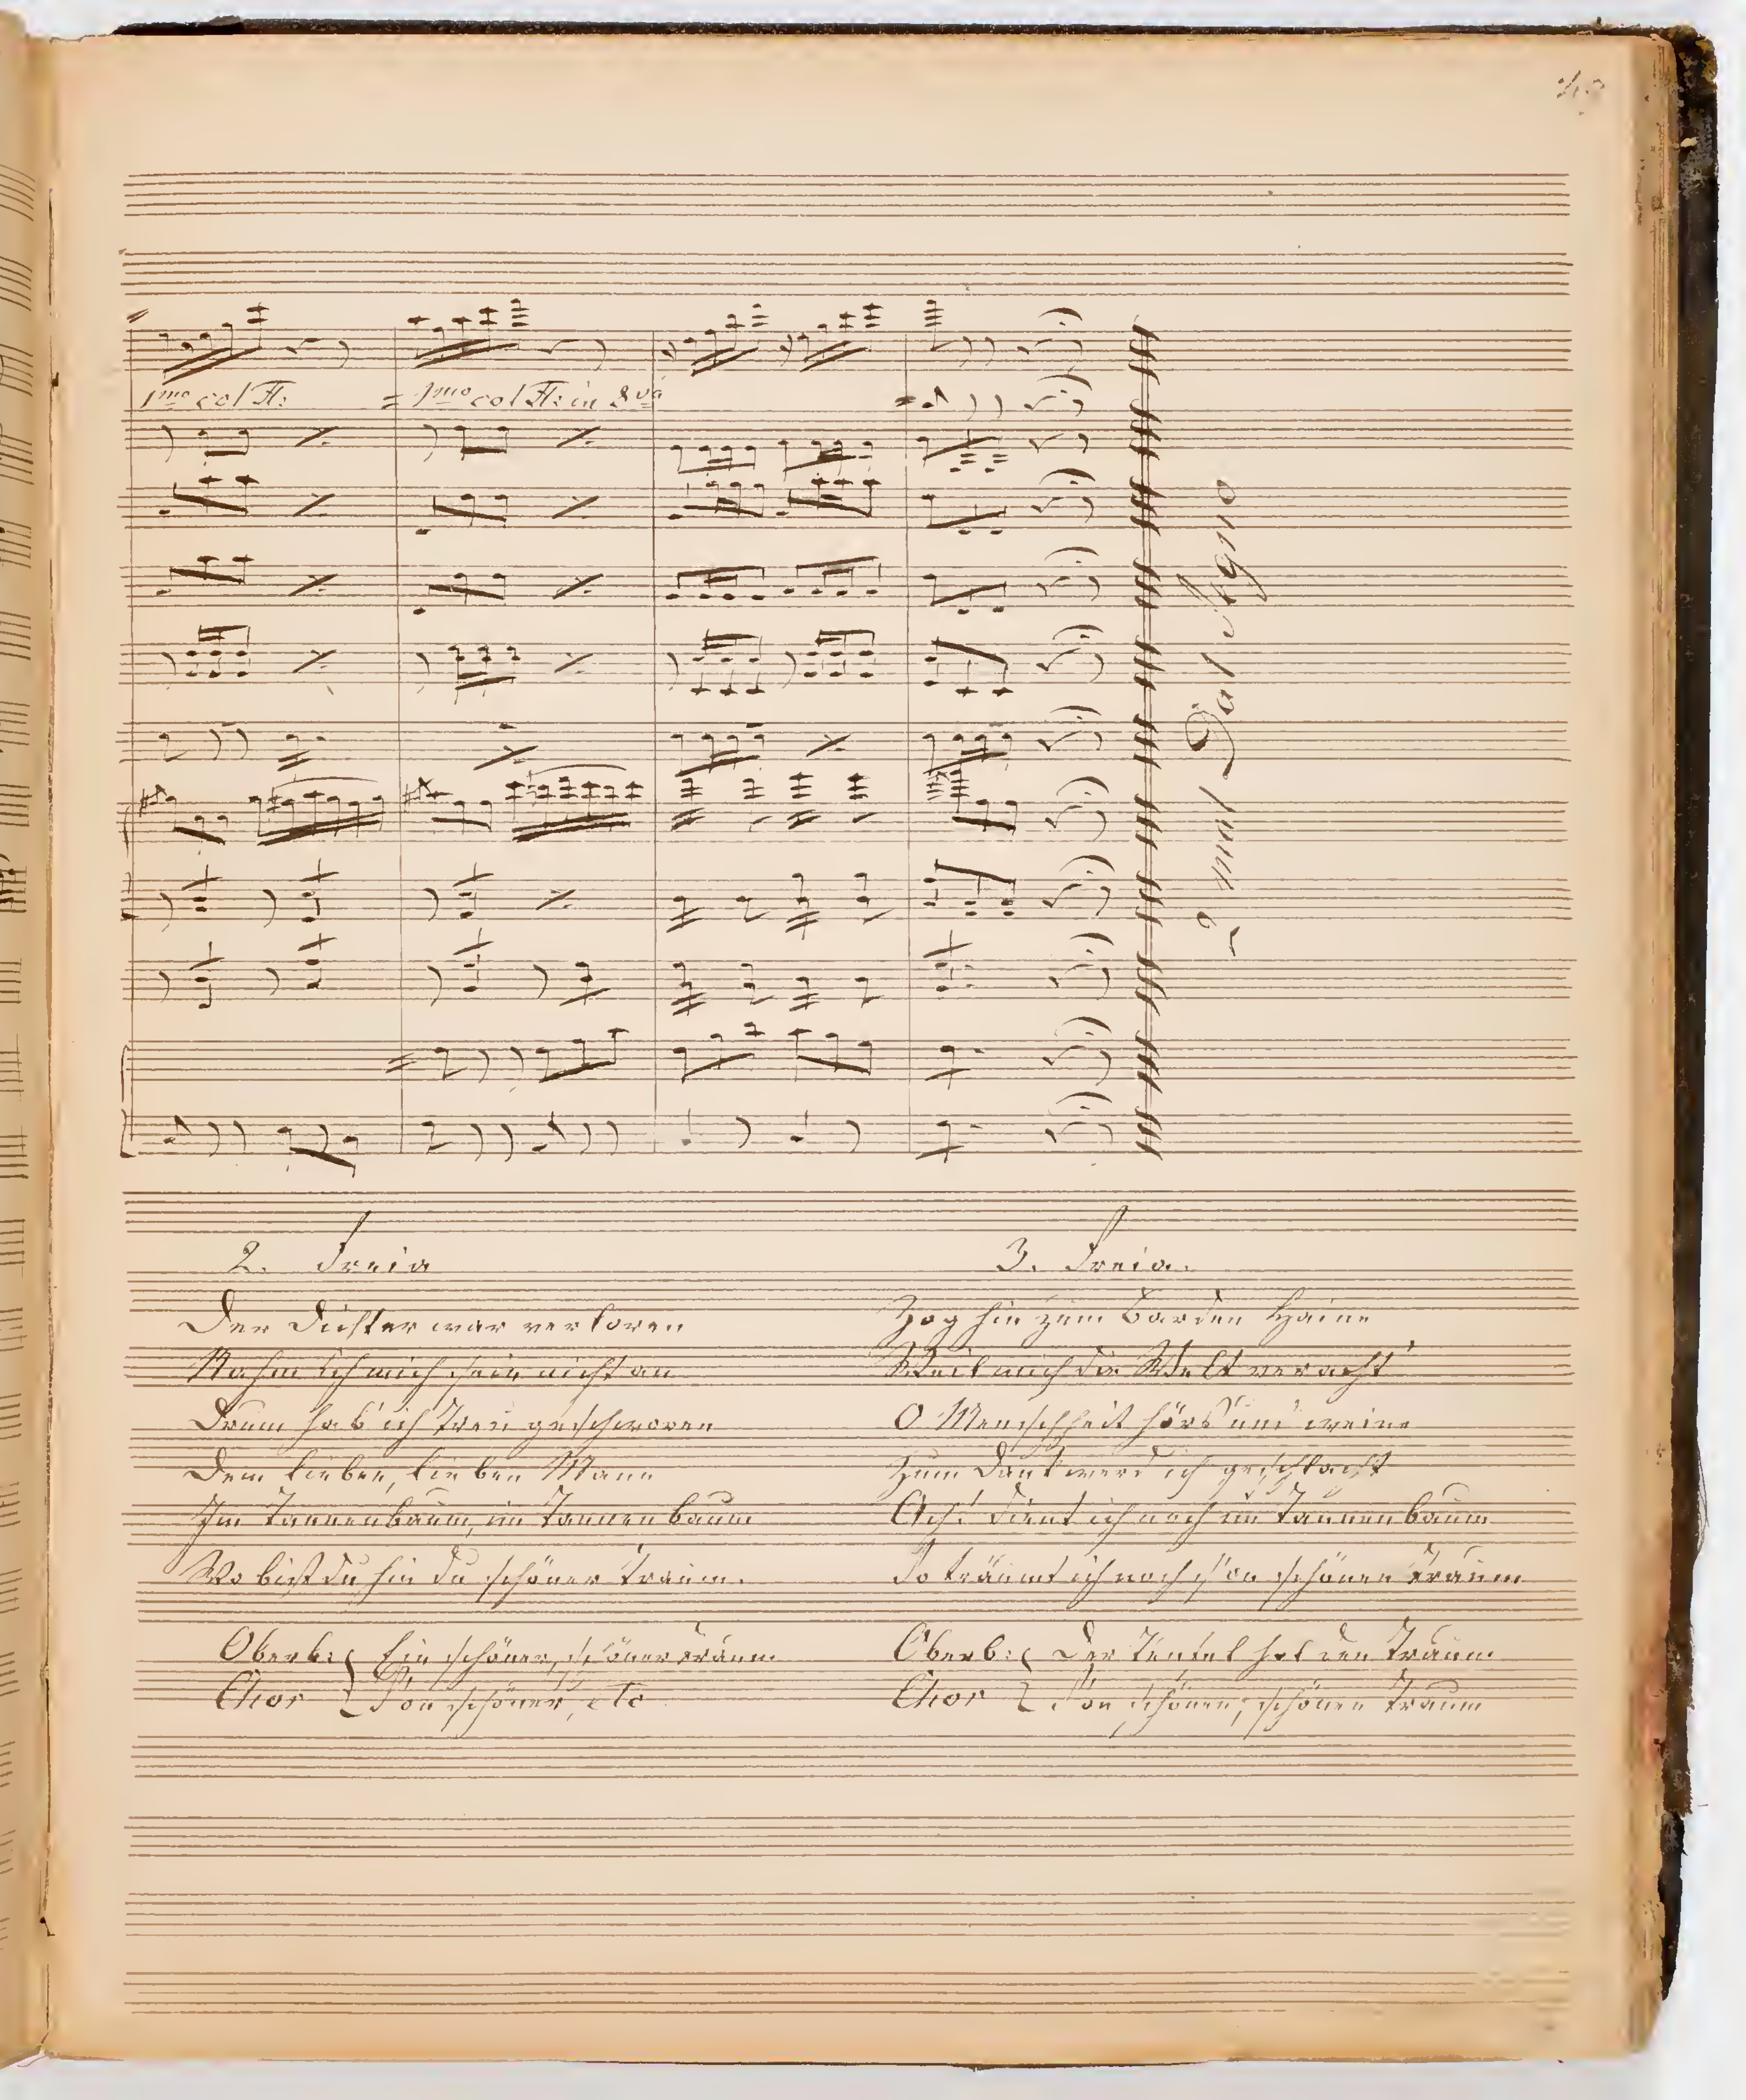 1mo col Fl:
= 1mo col Fl: in 8va
2 mal Dal Segno
2. Freia
Der Dichter war verloren
Nahm ich mich sein nicht an
Drum hab' ich treu geschworen
Dem lieben, lieben Mann
Im Tannenbaum, im Tannenbaum
Wo bist du hin du schöner Traum.
Oberb: Ein schöner, schöner Traum
Chor So'n schöner, etc
3. Freia.
Zog hin zum Barden Haine
Weil mich die Welt veracht'
O Menschheit hörs und weine
Zum Dank werd ich geschlacht
Ach! dient ich noch im Tannenbaum
So träumt ich noch so'n schönen Traum
Oberb: Der Teufel hol den Traum
Chor So'n schönen, schönen Traum